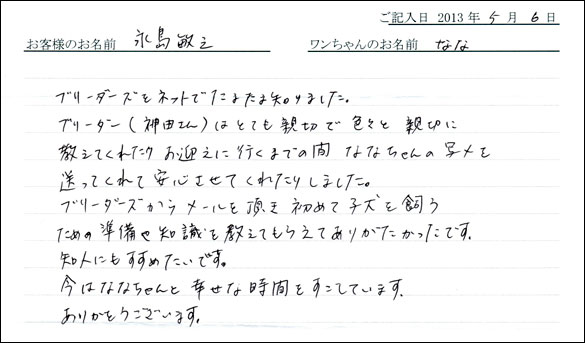 ご記入日 2013年 5月 6日
お客様のお名前 永島敏之 ワンちゃんのお名前 なな
ブリーダーズをネットでたまたま知りました。
ブリーダー(神田さん)はとても親切で色々と親切に
教えてくれたりお迎えに行くまでの間ななちゃんの写メを
送ってくれて安心させてくれたりしました。
ブリーダーズからメールを頂き初めて子犬を飼う
ための準備や知識を教えてもらえてありがたかったです。
知人にもすすめたいです。
今はななちゃんと幸せな時間をすごしています。
ありがとうございます。